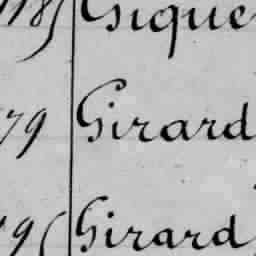 Gique
79 Girard
Girard